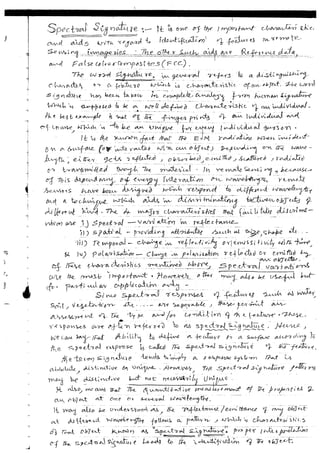 Spectral Signature :- It is one of the important characteristic
and aids with regard to identification of features in remote
Sensing imageries. The other such aids are Reference data,
and False color compositors (FCC).
The word signature, in general refers to a distinguishing
character or a feature which is characteristic of an object. The word
signature has been taken in complete analogy from human signature
which is supposed to be a well defined characteristic of an individual.
the best example is that of the finger prints of an individual and
of course, which is to be an unique for every individual person.
It is the known fact that the EM radiation when incident
on a surface (or interacts with an object) depending on the wave-
length, either gets reflected, absorbed, emitted, scattered, radiated
or transmitted through the material. In remote sensing, because
of this dependency of energy interaction on wavelength, remote
sensors have been designed which respond to different wavelengths,
but a technique which aids in discriminating between objects of
different kind. The major characteristics that facilitate discrimi-
nation are 1) Spectral - variation in reflectance.
ii) Spatial - providing attributes such as size, shape etc.
iii) Temporal - change in reflectivity or emissivity with time,
& iv) Polarisation - change in polarisation reflected or emitted by
an object.
of these characteristics mentioned above, Spectral variations
are the most important. However, other may also be useful but
for particular application only -
Since Spectral responses of features such as water,
Soil, vegetation etc. are separable, these permit an
assessment of the type and/or condition of the feature. These
responses are often referred to as spectral signature. Hence,
we can say that ability to define a feature or a surface according to
the spectral response is called the spectral signature of the feature.
The term signature tends to imply a response system that is
absolute, distinctive or unique. However, the spectral signature patterns
may be distinctive but not necessarily unique.
It also, means that the quantitative measurement of the properties of
an object at one or several wavelengths.
It may also be understood as, the reflectance/emittance of any object
at different wavelengths follows a pattern, which is characteristics
of that object known as "Spectral Signature". proper interpretation
of the spectral signature leads to the identification of the object.